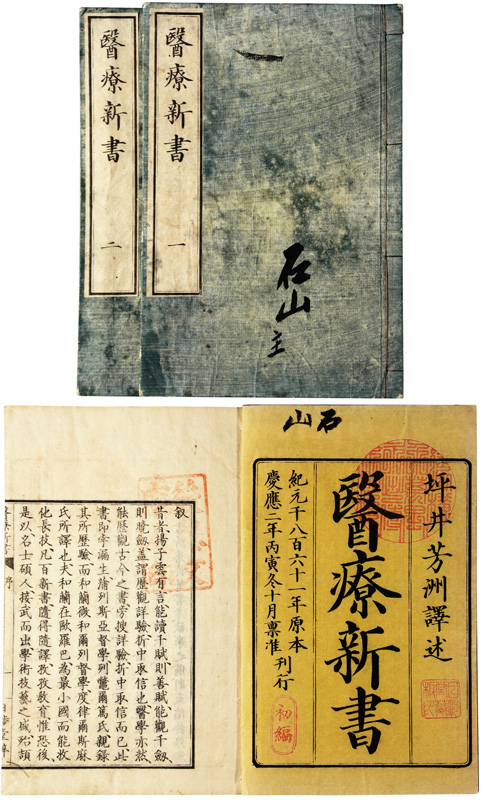 一
石山
主
醫療新書 一
醫療新書 二
石山
坪井芳洲譯述
醫療新書
初編
紀元千八百六十一年原本
慶應二年丙寅冬十月稟准 刊行
叙
昔者揚子雲有言能讀千賦則善賦能觀千劔
則曉劔蓋謂歷觀詳驗折中取信也醫學亦然
能歷觀古今之書旁搜詳驗折中取信而已此
書即孛漏生繒列斯亞督學列鼈爾篤氏親錄
其所歷驗而和蘭微和爾列督學度律爾斯麻
氏所譯也夫和蘭在歐羅巴為最小國而能
化長技凡百新書隨得隨譯孜孜教育惟恐後
是以名士碩人接武而出學術技藝之域殆頡
序